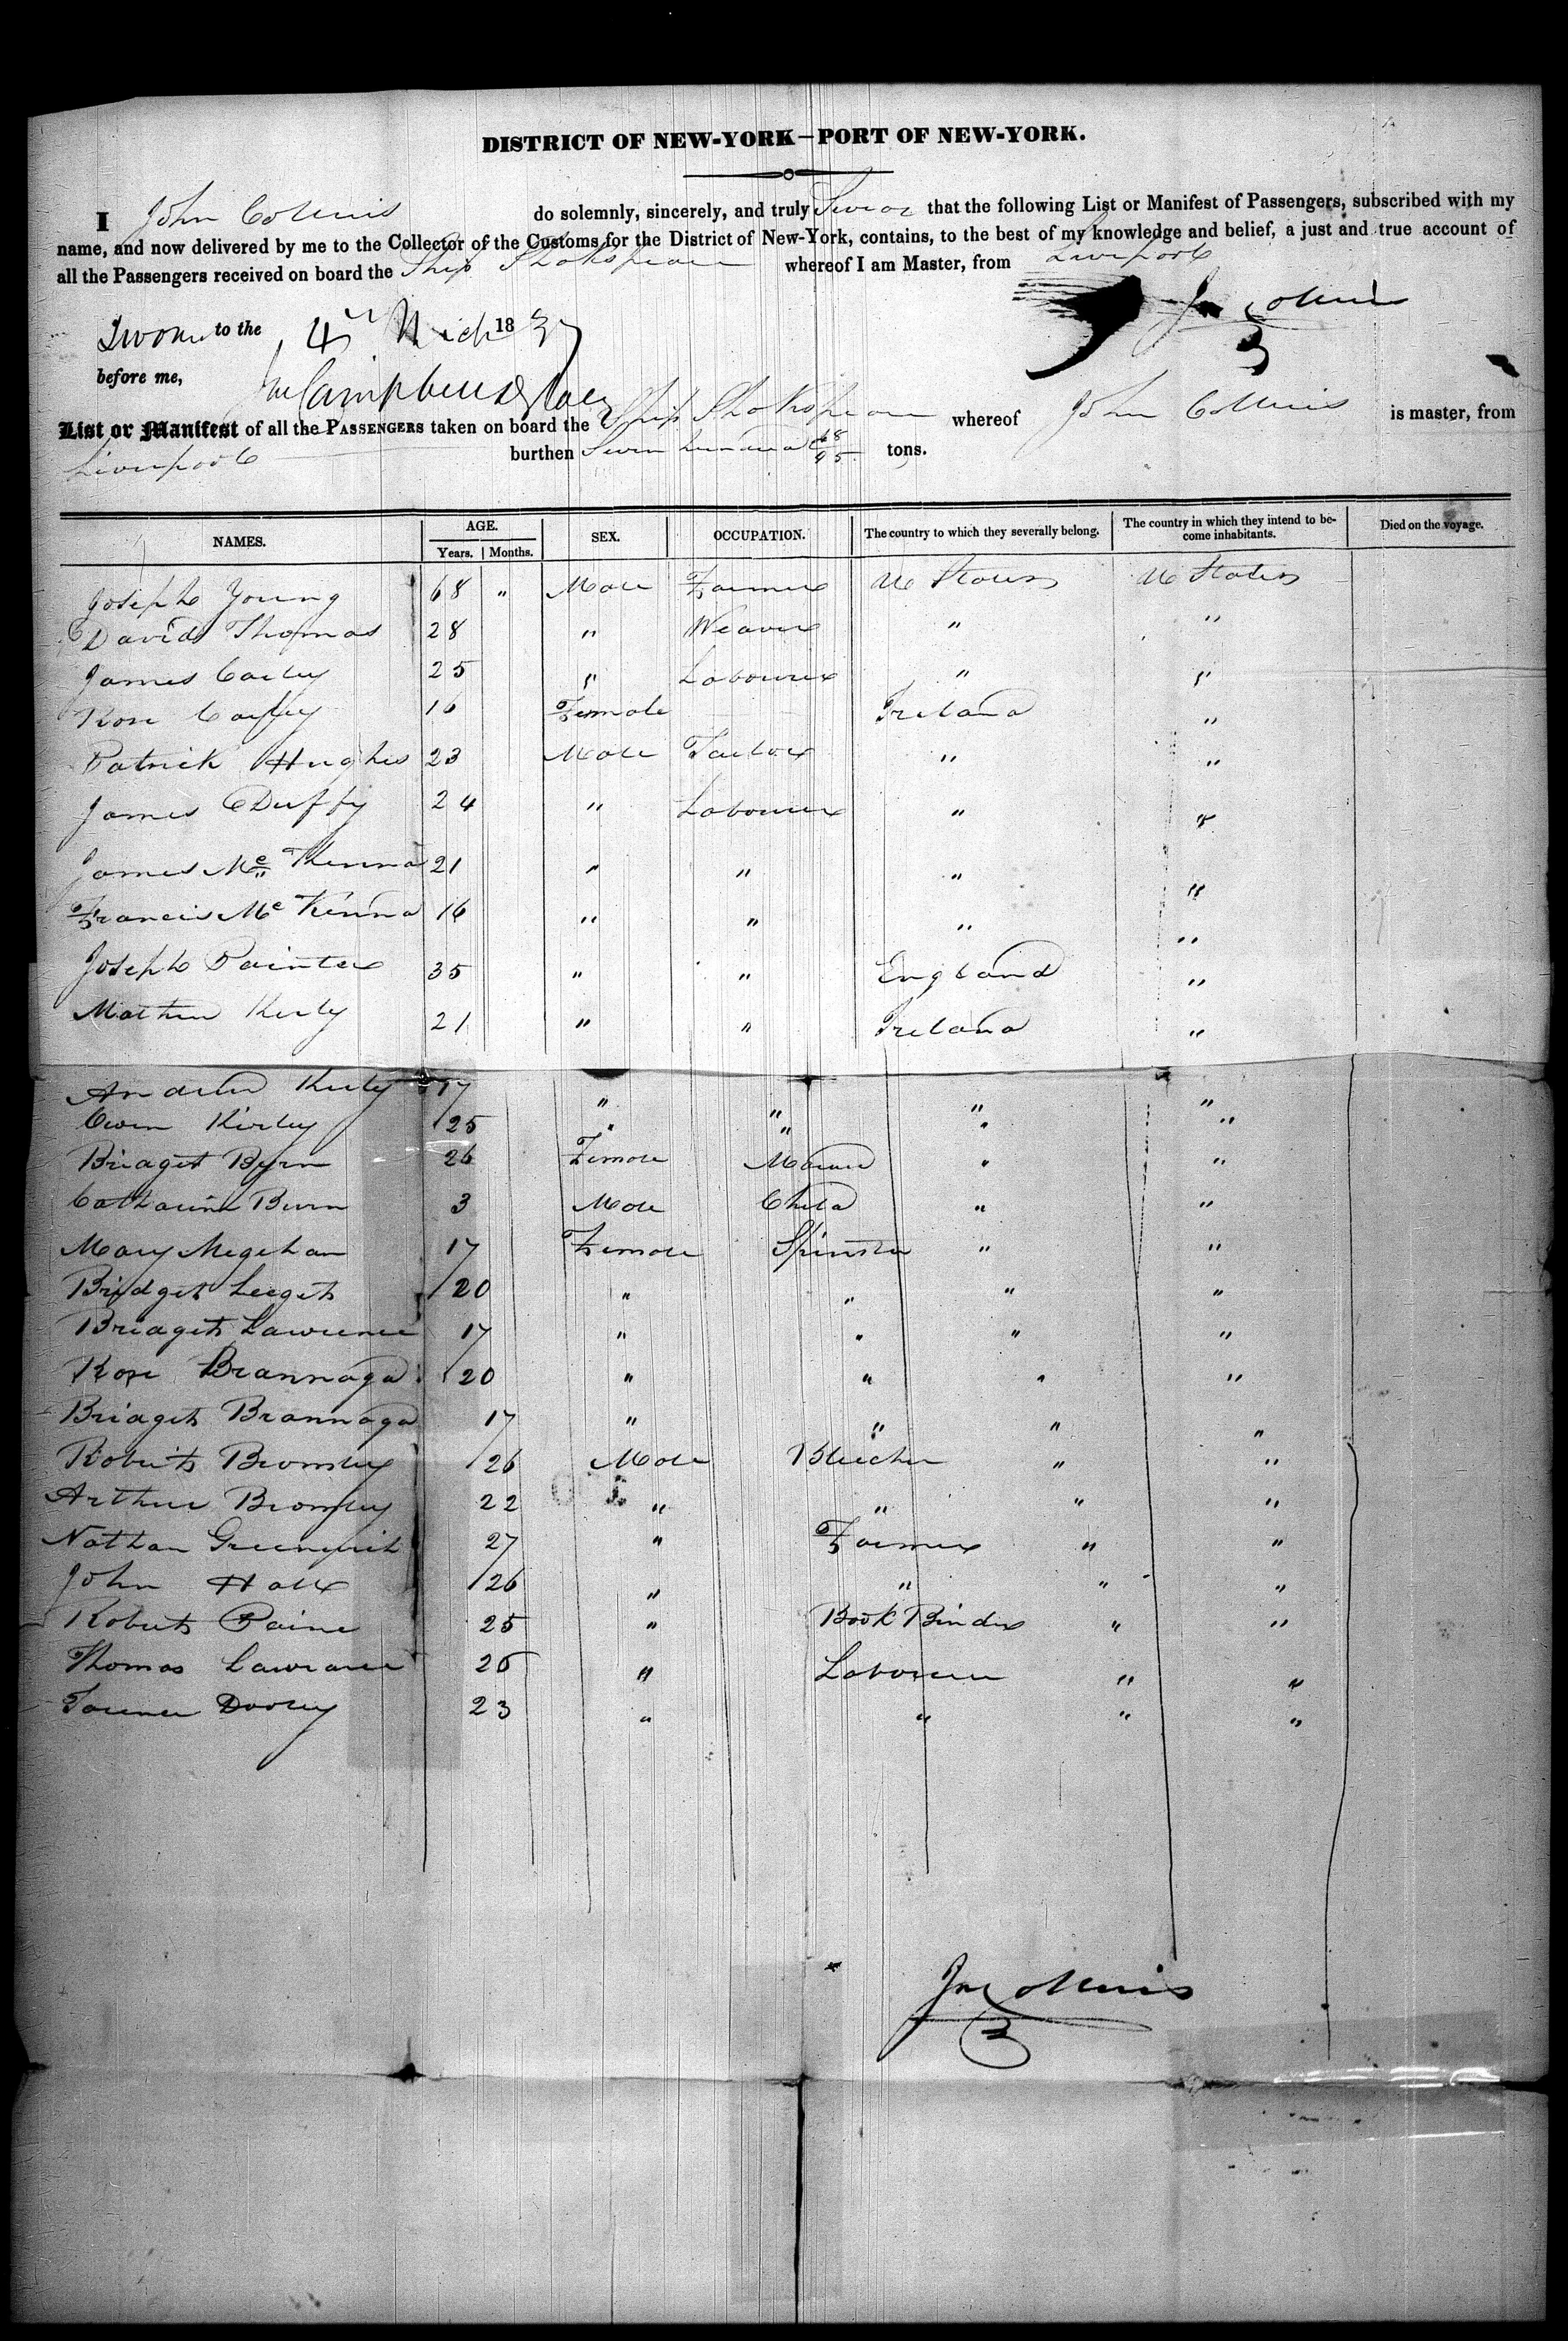 DISTRICT OF NEW-YORK—PORT OF NEW-YORK.
I John Collins do solemnly, sincerely, and truly Swear that the following List or Manifest of Passengers, subscribed with my
name, and now delivered by me to the Collector of the Customs for the District of New-York, contains, to the best of my knowledge and belief, a just and true account of
all the Passengers received on board the Ship Shakspeare whereof I am Master, from Liverpool
Sworn to the 4th March 1837 Jn Collins
before me,
List or Manifest of all the PASSENGERS taken on board the Ship Shakspeare whereof John Collins is master, from
Liverpool burthen Seven hundred & 48/95 tons.
NAMES. AGE. SEX. OCCUPATION. The country to which they severally belong. The country in which they intend to be- Died on the voyage.
Years. Months. come inhabitants.
Joseph Young 68 " Male Farmer U States U States
David Thomas 28 " Weaver " "
James Carley 25 " Labourer " "
Rose 16 Female Ireland "
Patrick Hughes 23 Male Tailor " "
James Duffy 24 " Labourer " "
James Mc Kenna 21 " " " "
Francis Mc Kenna 16 " " " "
Joseph Painter 35 " " England "
Mathew Kerly 21 " " Ireland "
Andrew Kerly 17 " " " "
Owen Kirley 25 " " " "
Bridget Byrn 26 Female Married " "
Catharine Burn 3 Male Child " "
Mary Megehan 17 Female Spinster " "
Bridget Leeget 20 " " " "
Bridget Lawrence 17 " " " "
Rose Brannaga 20 " " " "
Bridget Brannaga 17 " " " "
Robert Bromley 26 Male Bleecher " "
Arthur Bromley 22 " " " "
Nathan 27 " Farmer " "
John Hall 26 " " " "
Robert Paine 25 " Book Binder " "
Thomas Lawrance 25 " Labourer " "
Dooley 23 " " " "
Jn Collins